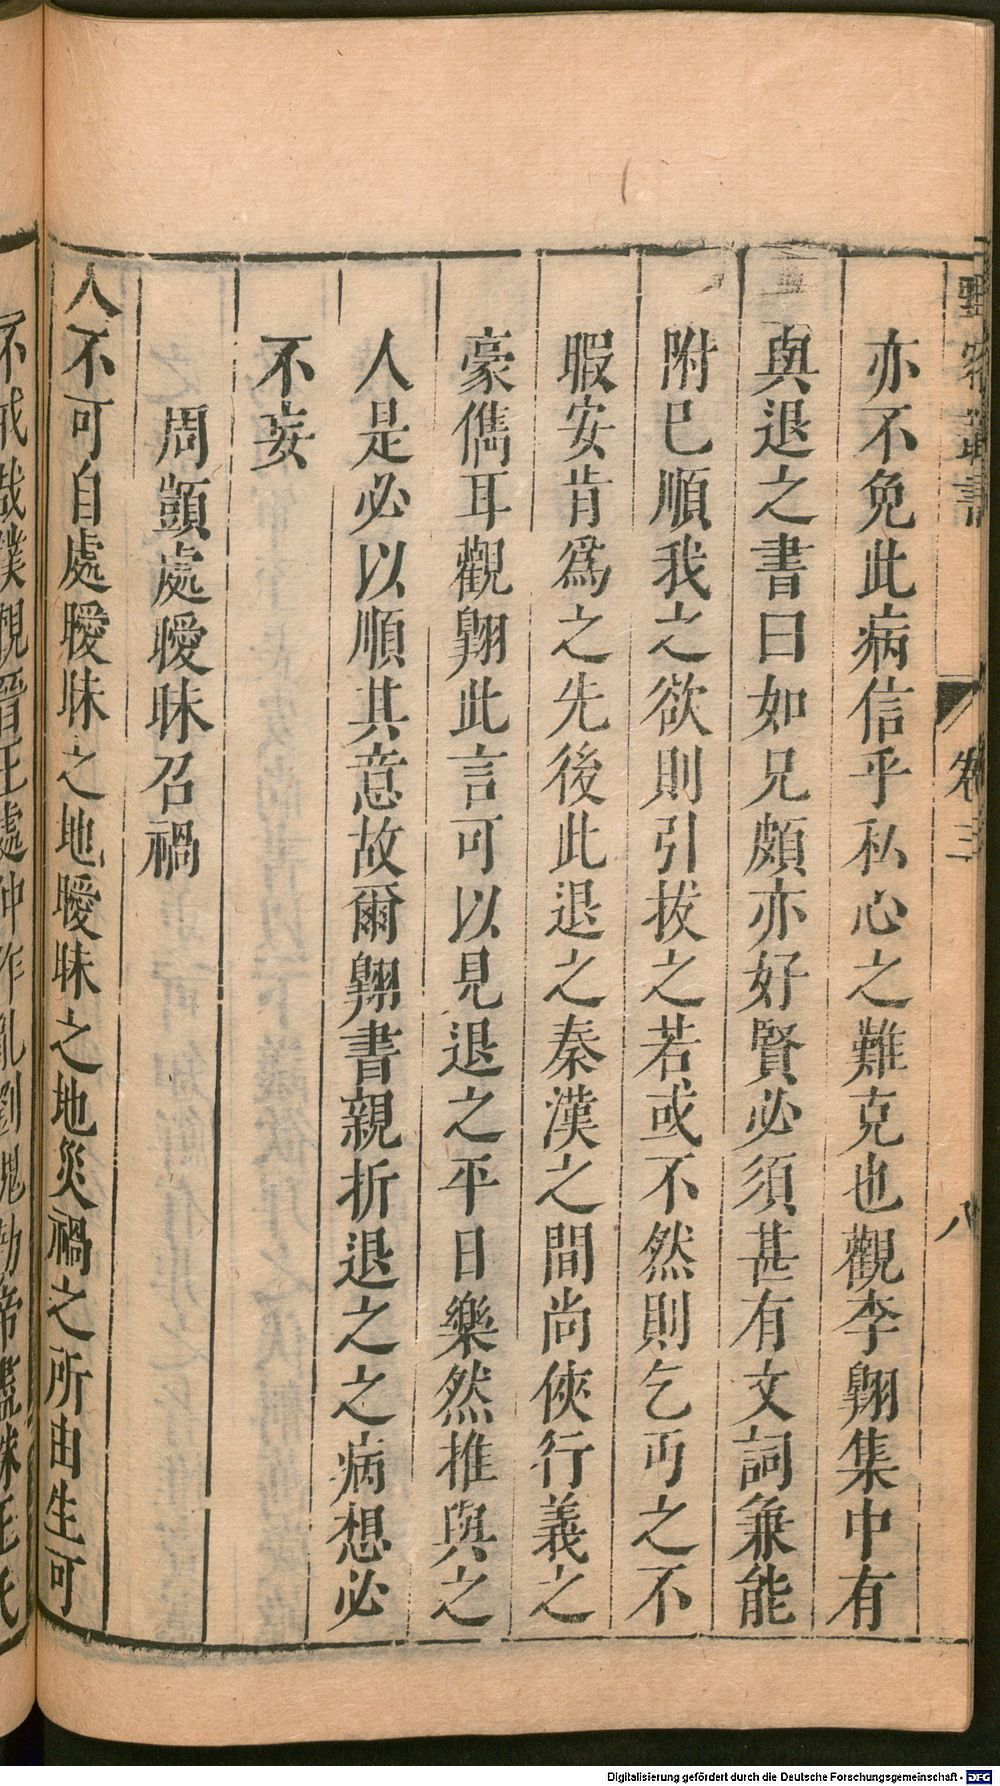 野客叢書
卷三
八
亦不免此病信乎私心之難克也觀李翺集中有
與退之書曰如兄頗亦好賢必須甚有文詞兼能
附巳順我之欲則引拔之若或不然則乞丐之不
暇安肯爲之先後此退之秦漢之間尚俠行義之
豪儁耳觀翺此言可以見退之平日樂然推與之
人是必以順其意故爾翺書親折退之之病想必
不妄
周顗處曖昧召禍
人不可自處曖昧之地曖昧之地災禍之所由生可
不戒哉僕觀晉王處仲作亂劉隗勸帝盡誅王氏
Digitalisierung gefördert durch die Deutsche Forschungsgemeinschaft - DFG